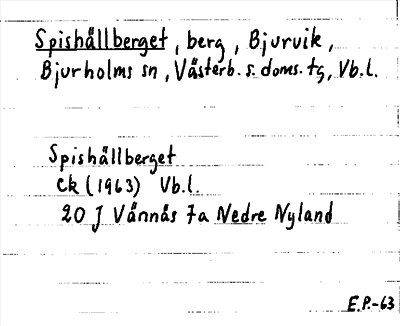 Spishällberget, berg, Bjurvik,
Bjurholms sn, Västerb. s. doms. tg, Vb.l.
Spishällberget
ek (1963) Vb.l.
20 J Vännäs 7a Nedre Nyland
E.P.-63